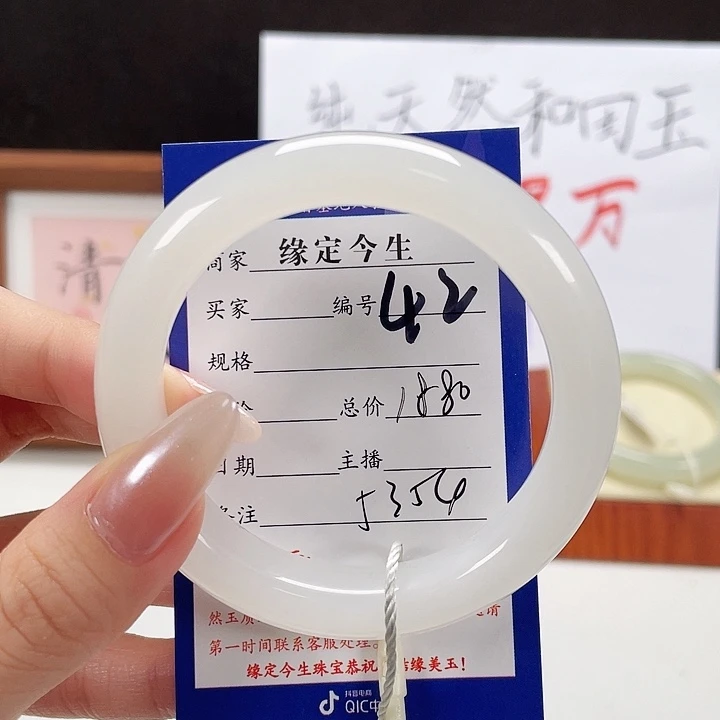 纯天然和田玉
万
清
商家 缘定今生
买家 编号 42
规格
总价 1880
日期 主播
备注 5354
然玉质
第一时间联系客服处理。
缘定今生珠宝恭祝 结缘美玉!
抖音电商
QIC中